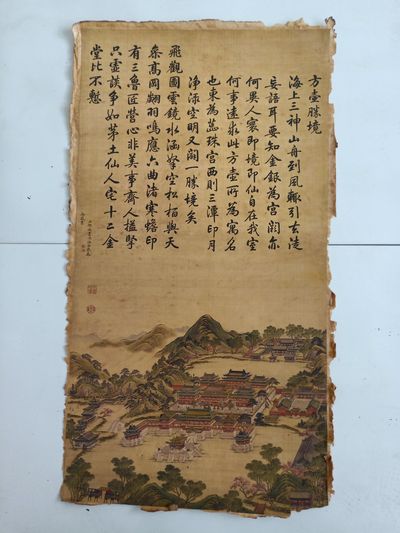 方壺勝境
海上三神山舟到風輒引去徒
妄語耳要知金銀為宮闕亦
何異人寰即境即仙自在我室
何事遠求此方壺所為寓名
也東為蕊珠宮西則三潭印月
淨淥空明又闢一勝境矣
飛觀圖雲鏡水涵拏空松柏與天
叅高岡翽羽鳴應六曲渚寒蟾印
有三魯匠營心非美事齊人搤掔
只虛談爭如茅土仙人宅十二金
堂比不慙